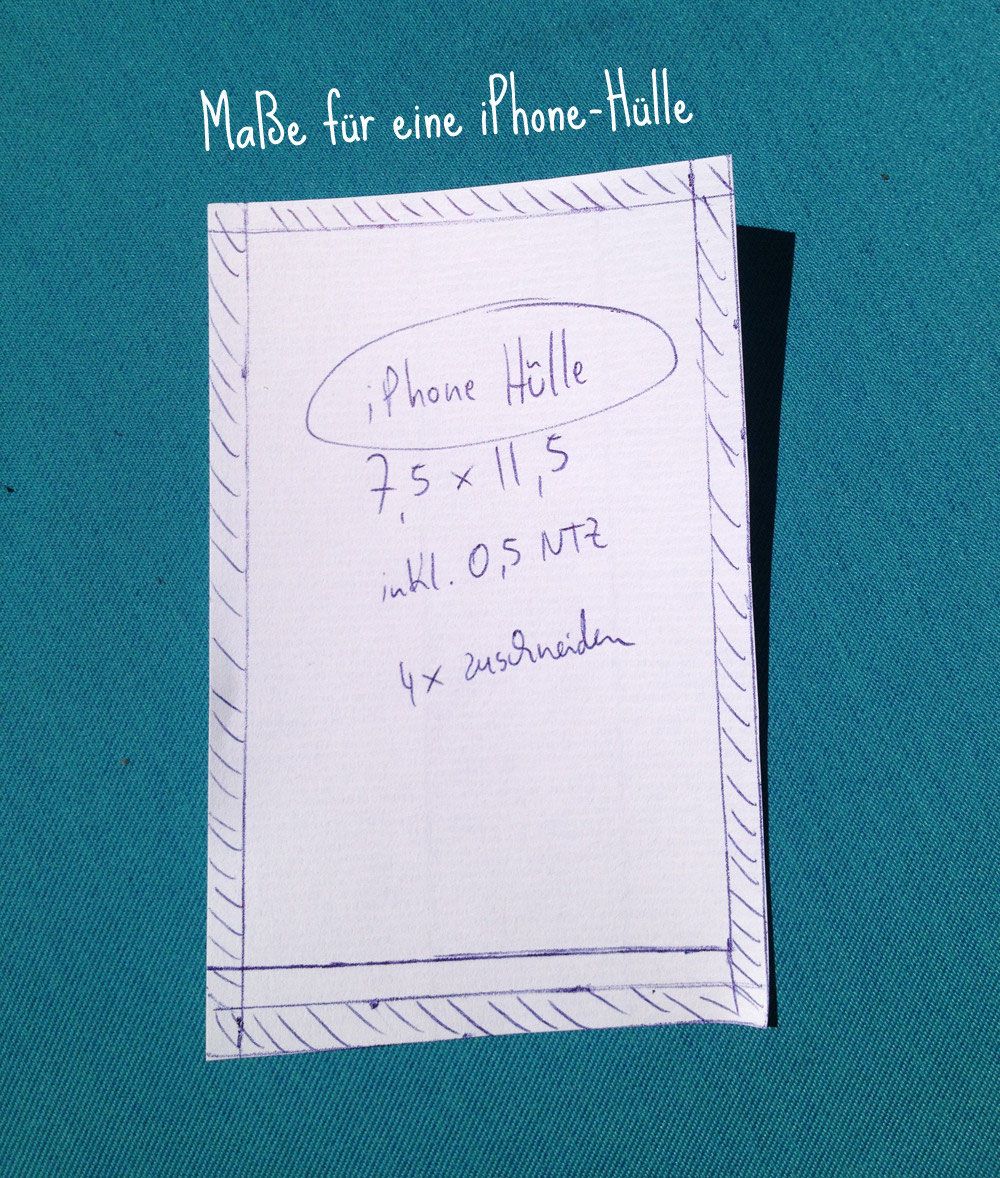 Maße für eine iPhone-Hülle
iPhone Hülle
7,5 x 11,5
inkl. 0,5 NTZ
4x zuschneiden